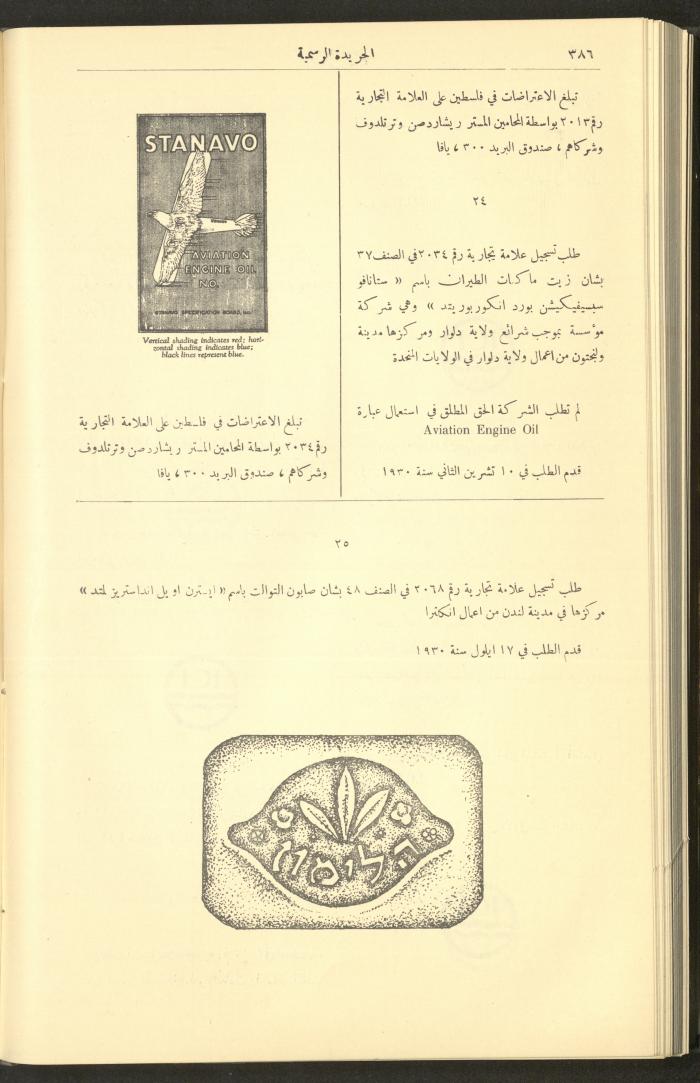 ٣٨٦
الجريدة الرسمية
تبلغ الاعتراضات في فلسطين على العلامة التجارية
رقم ٢٠١٣ بواسطة المحامين المستر ريشاردصن وترتلدوف
وشركاهم ، صندوق البريد ٣٠٠ ، يافا
٢٤
طلب تسجيل علامة تجارية رقم ٢٠٣٤ في الصنف ٣٧
بشان زيت ماكنات الطيران باسم « ستانافو
سبسيفيكيشن بورد انكوربوريتد » وهي شركة
مؤسسة بموجب شرائع ولاية دلوار ومركزها مدينة
ولنجتون من اعمال ولاية دلوار في الولايات المتحدة
لم تطلب الشركة الحق المطلق في استعمال عبارة
Aviation Engine Oil
قدم الطلب في ١٠ تشرين الثاني سنة ١٩٣٠
STANAVO
AVIATION
ENGINE OIL
NO.
STANAVO SPECIFICATION BOARD, INC.
Vertical shading indicates red; hori-
zontal shading indicates blue;
black lines represent blue.
تبلغ الاعتراضات في فلسطين على العلامة التجارية
رقم ٢٠٣٤ بواسطة المحامين المستر ريشاردصن وترتلدوف
وشركاهم ، صندوق البريد ٣٠٠ ، يافا
٢٥
طلب تسجيل علامة تجارية رقم ٢٠٦٨ في الصنف ٤٨ بشان صابون التوالت باسم « ايسترن اويل انداستريز لمتد »
مركزها في مدينة لندن من اعمال انكلترا
قدم الطلب في ١٧ ايلول سنة ١٩٣٠
הלימון